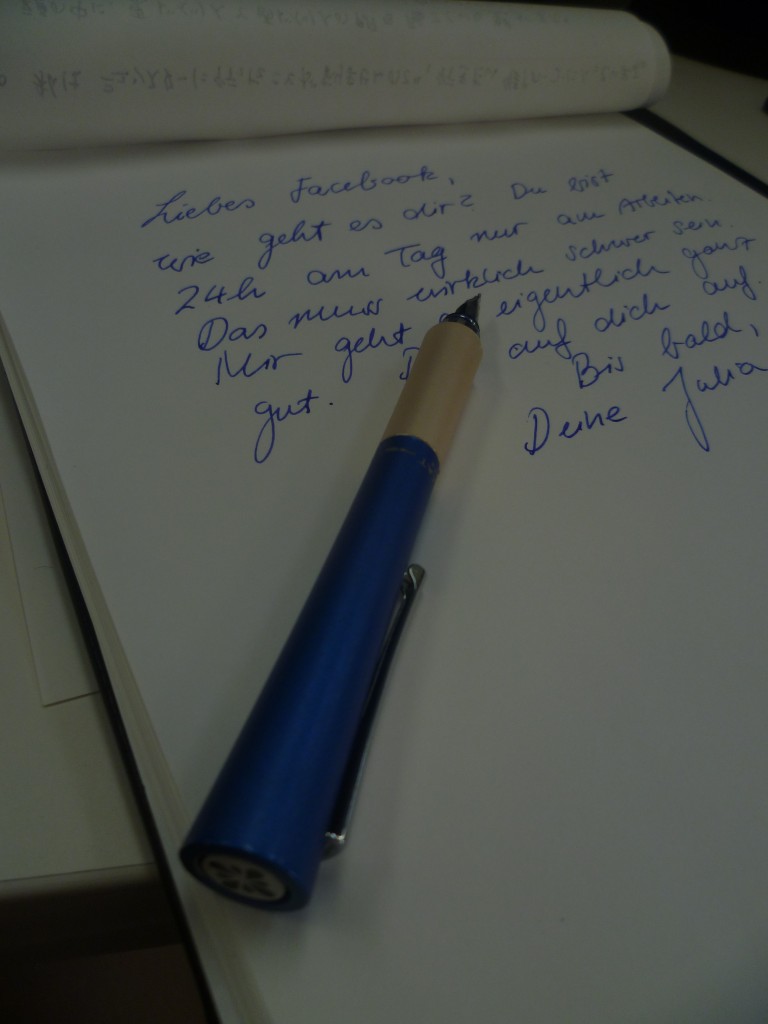 Liebes Facebook,
wie geht es dir? Du bist
24h am Tag nur am Arbeiten.
Das muss wirklich schwer sein.
Mir geht eigentlich ganz
gut. auf dich auf.
Bis bald,
Deine Julia